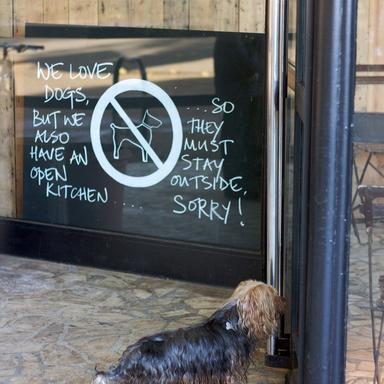 WE LOVE
DOGS,
BUT WE
ALSO
HAVE AN
OPEN
KITCHEN ....
...SO
THEY
MUST
STAY
OUTSIDE,
SORRY!